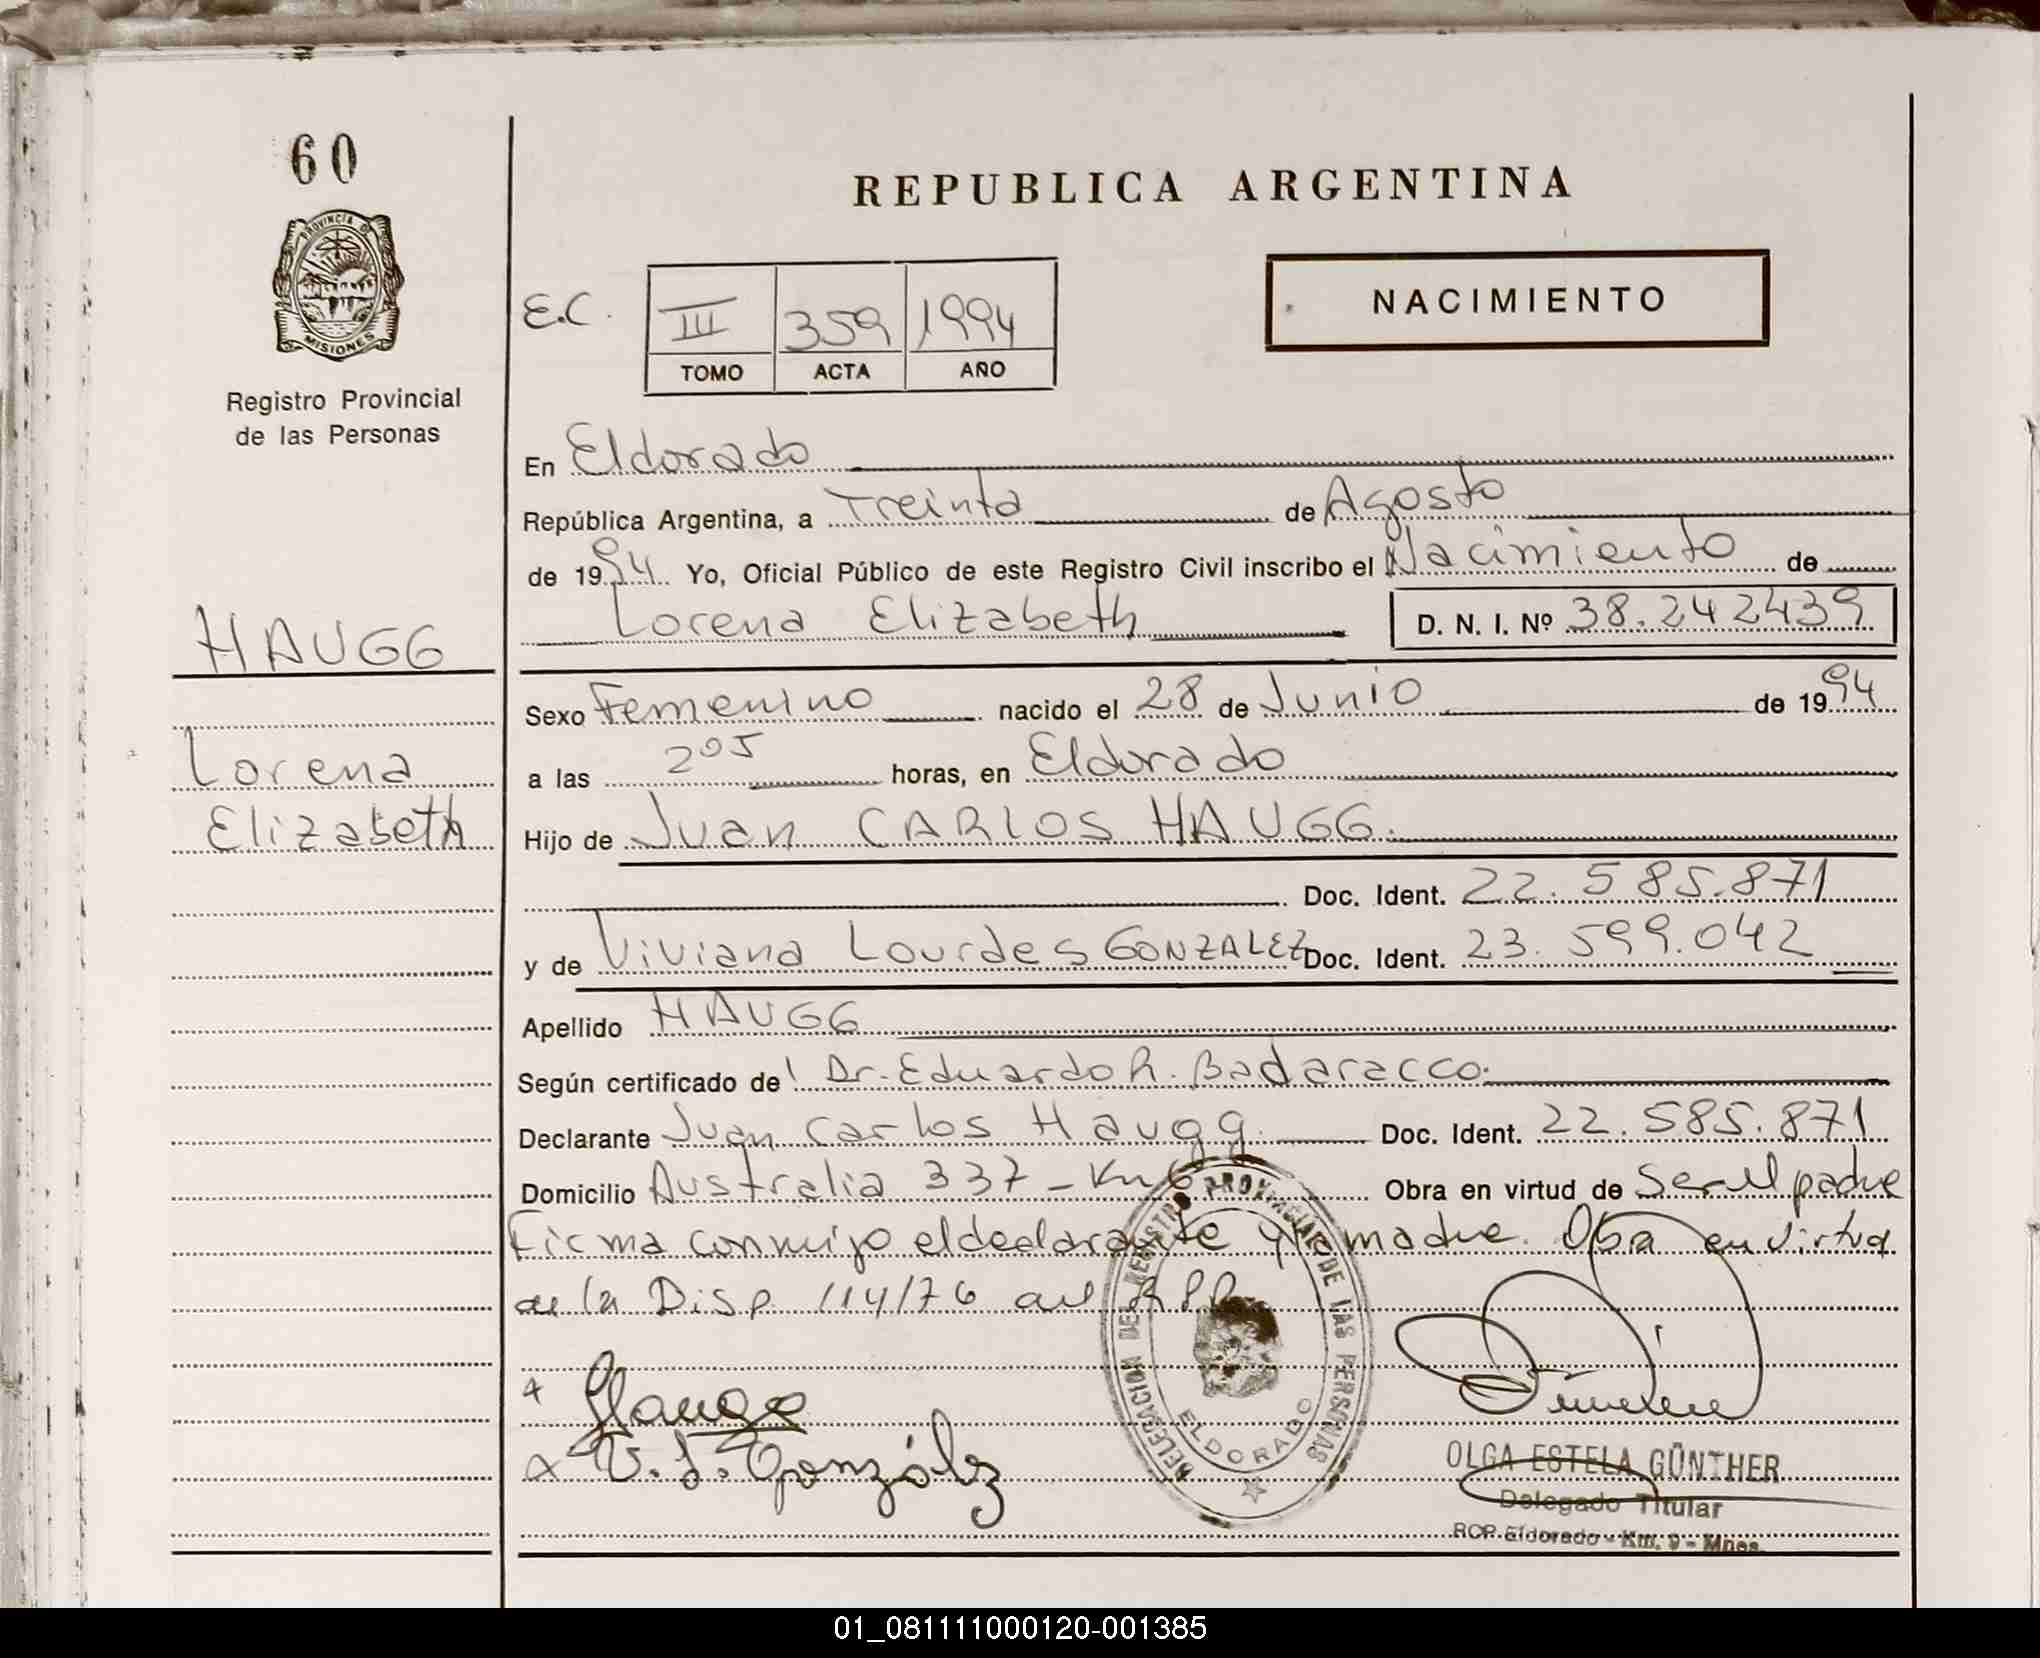 60
PROVINCIA DE
MISIONES
Registro Provincial
de las Personas
HAUGG
Lorena
Elizabeth
REPUBLICA ARGENTINA
NACIMIENTO
E.C.
III 359 1994
TOMO ACTA AÑO
En Eldorado
República Argentina, a Treinta de Agosto
de 1994 Yo, Oficial Público de este Registro Civil inscribo el Nacimiento de
Lorena Elizabeth D. N. I. Nº 38.242439
Sexo Femenino nacido el 28 de Junio de 1994
a las 205 horas, en Eldorado
Hijo de Juan CARLOS HAUGG.
Doc. Ident. 22.585.871
y de Viviana Lourdes GONZALEZ Doc. Ident. 23.599.042
Apellido HAUGG
Según certificado del Dr. Eduardo R. Badaracco.
Declarante Juan Carlos Haugg. Doc. Ident. 22.585.871
Domicilio Australia 337 - Km 6 Obra en virtud de ser el padre
Firma conmigo el declarante y la madre. Obra en virtud
de la Disp. 114/76 del RPP
DELEGACION DEL REGISTRO PROVINCIAL DE LAS PERSONAS
ELDORADO
x Haugg
x V. L. González
OLGA ESTELA GÜNTHER
Delegado Titular
RCP. Eldorado - Km. 9 - Mnes.
01_081111000120-001385